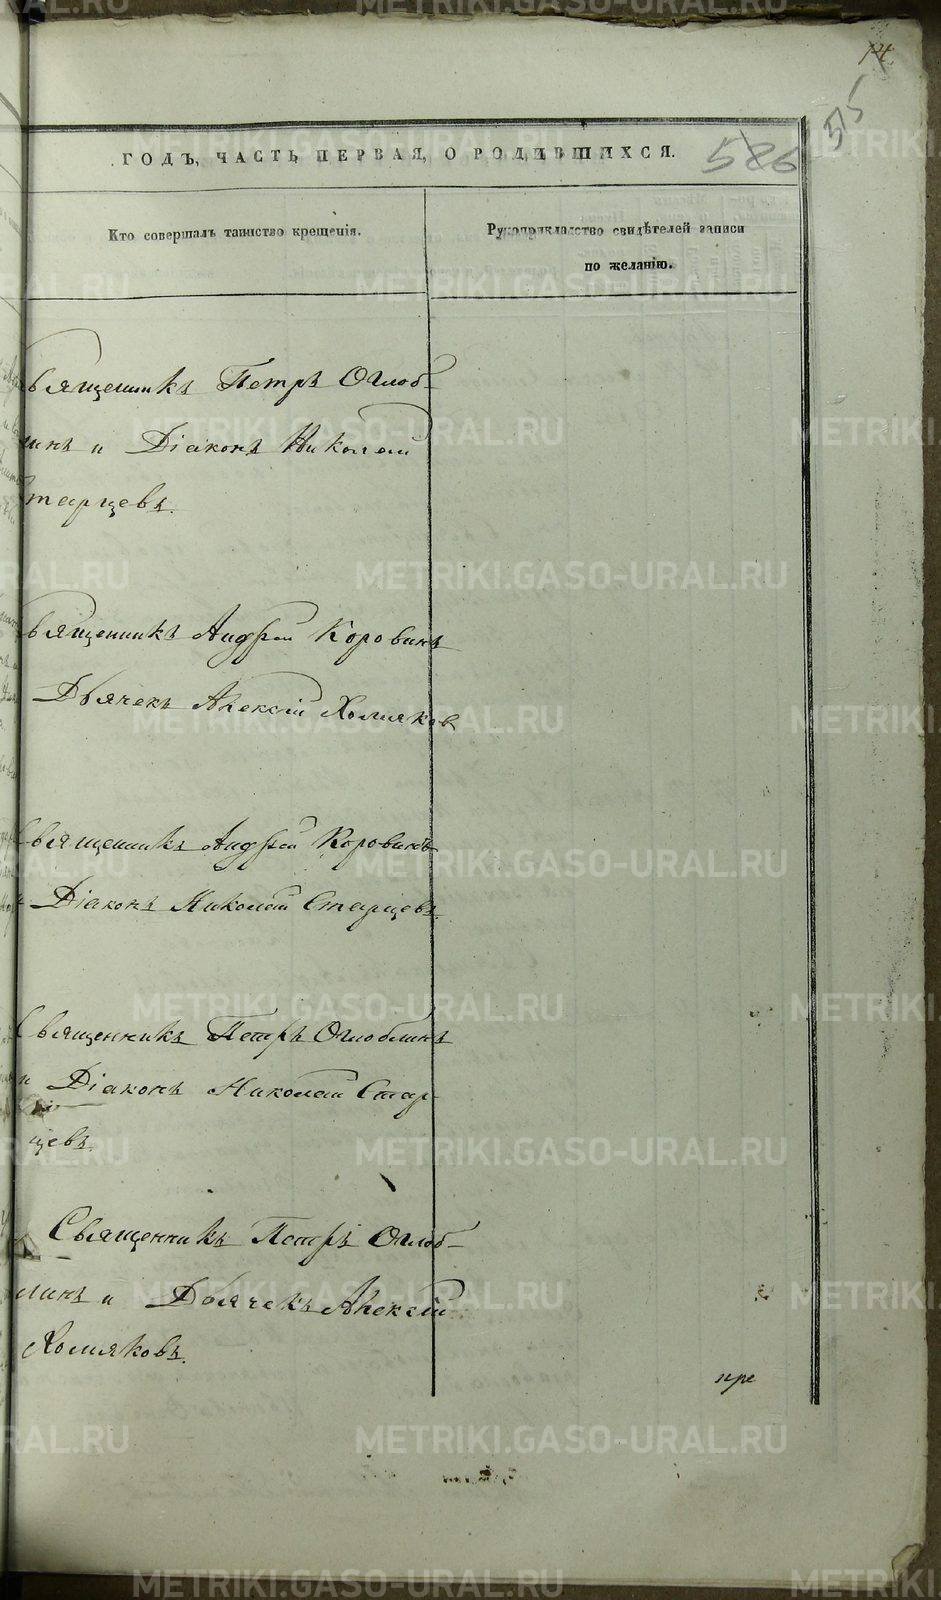 14
515
526
ГОДЪ, ЧАСТЬ ПЕРВАЯ, О РОДИВШИХСЯ.
Кто совершалъ таинство крещенія.
Рукоприкладство свидѣтелей записи
по желанію.
Священникъ Петръ Оглоб-
линъ и Діаконъ Николай
Старцевъ.
Священникъ Андрей Коровинъ
Дьячекъ Алексѣй Холмяков
Священникъ Андрей Коровинъ
и Діаконъ Николай Старцевъ.
Священникъ Петръ Оглоблинъ
и Діаконъ Николай Стар-
цевъ.
Священникъ Петръ Оглоб-
линъ и Дьячекъ Алексѣй
Холмяковъ.
пре
METRIKI.GASO-URAL.RU